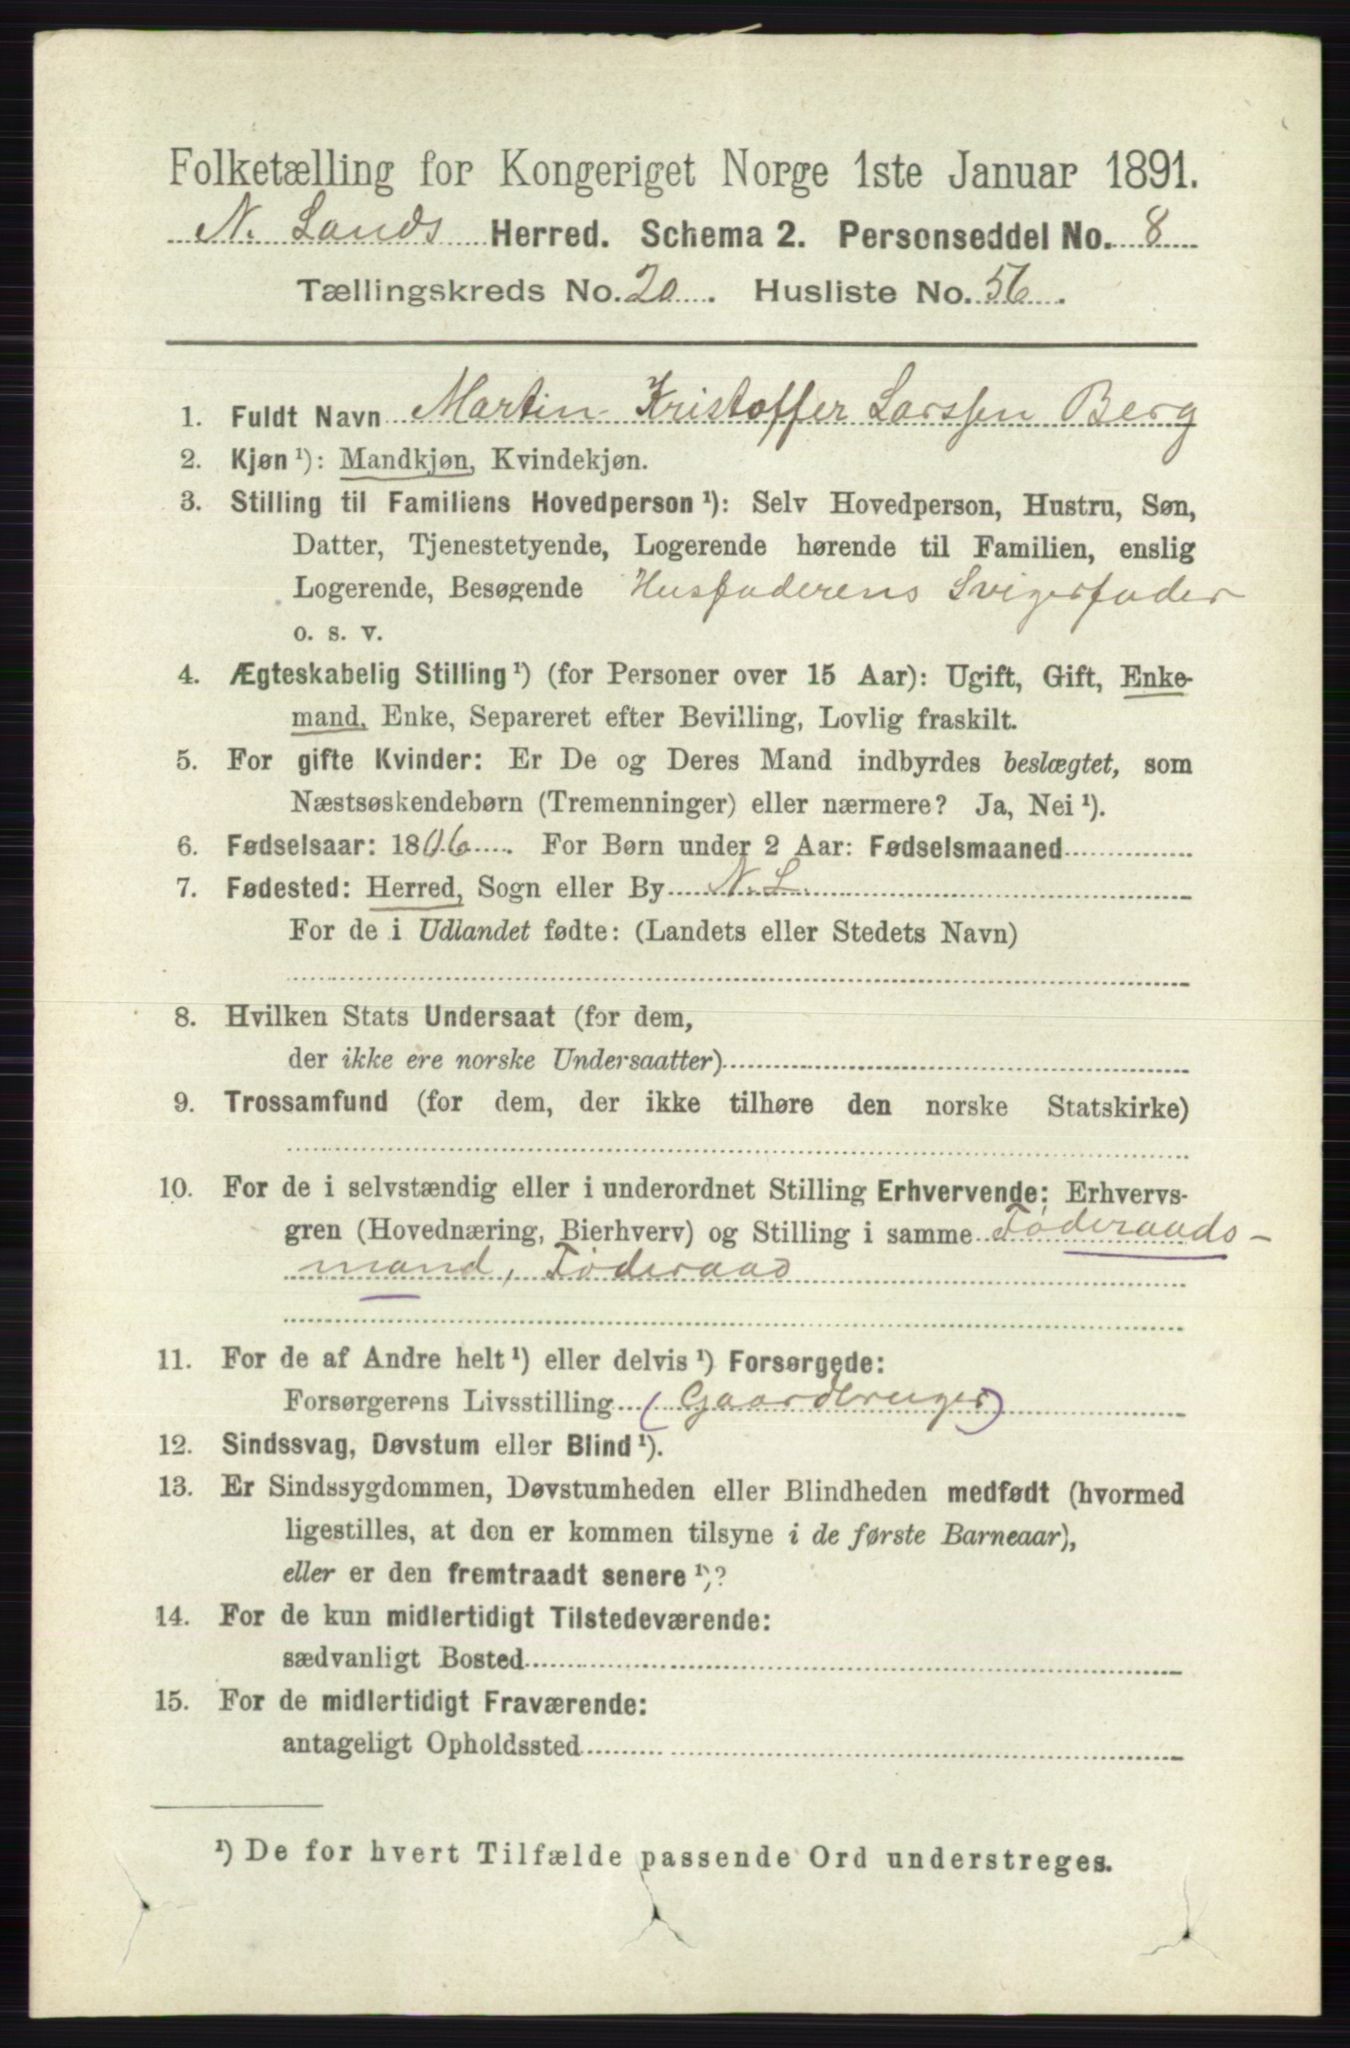 Folketælling for Kongeriget Norge 1ste Januar 1891.
N. Lands Herred. Schema 2. Personseddel No. 8
Tællingskreds No. 20. Husliste No. 56.
1. Fuldt Navn Martin Kristoffer Larssen Berg
2. Kjøn ¹): Mandkjøn, Kvindekjøn.
3. Stilling til Familiens Hovedperson ¹): Selv Hovedperson, Hustru, Søn,
Datter, Tjenestetyende, Logerende hørende til Familien, enslig
Logerende, Besøgende Husfaderens Svigerfader
o. s. v.
4. Ægteskabelig Stilling ¹) (for Personer over 15 Aar): Ugift, Gift, Enke-
mand, Enke, Separeret efter Bevilling, Lovlig fraskilt.
5. For gifte Kvinder: Er De og Deres Mand indbyrdes beslægtet, som
Næstsøskendebørn (Tremenninger) eller nærmere? Ja, Nei ¹).
6. Fødselsaar: 1806. For Børn under 2 Aar: Fødselsmaaned
7. Fødested: Herred, Sogn eller By N. L.
For de i Udlandet fødte: (Landets eller Stedets Navn)
8. Hvilken Stats Undersaat (for dem,
der ikke ere norske Undersaatter)
9. Trossamfund (for dem, der ikke tilhøre den norske Statskirke)
10. For de i selvstændig eller i underordnet Stilling Erhvervende: Erhvervs-
gren (Hovednæring, Bierhverv) og Stilling i samme Føderaads-
mand, Føderaad
11. For de af Andre helt ¹) eller delvis ¹) Forsørgede:
Forsørgerens Livsstilling (Gaardbruger)
12. Sindssvag, Døvstum eller Blind ¹).
13. Er Sindssygdommen, Døvstumheden eller Blindheden medfødt (hvormed
ligestilles, at den er kommen tilsyne i de første Barneaar),
eller er den fremtraadt senere ¹)?
14. For de kun midlertidigt Tilstedeværende:
sædvanligt Bosted
15. For de midlertidigt Fraværende:
antageligt Opholdssted
¹) De for hvert Tilfælde passende Ord understreges.